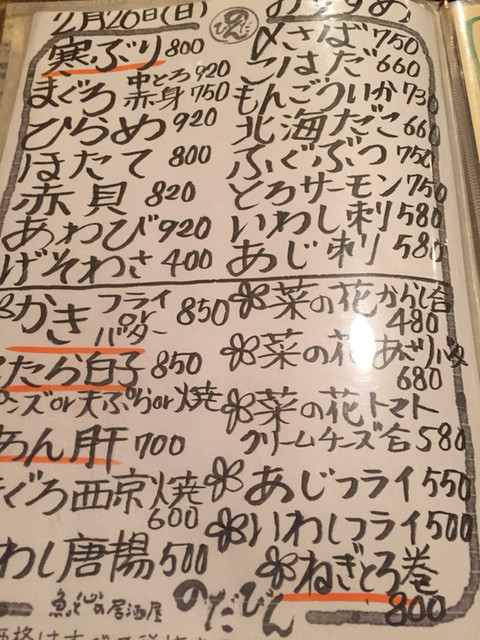 2月26日(日)
おすすめ
寒ぶり 800
まぐろ 中とろ 920
赤身 750
ひらめ 920
ほたて 800
赤貝 820
あわび 920
げそわさ 400
〆さば 750
こはだ 660
もんごういか 730
北海だこ 660
ふぐぶつ 750
とろサーモン 750
いわし刺 580
あじ刺 580
かき フライ or バター 850
たら白子 850
ポンズor天ぷらor焼
あん肝 700
まぐろ西京焼
600
いわし唐揚 500
菜の花 からし合
480
菜の花 あさりバタ
680
菜の花 トマト
クリームチーズ合 580
あじフライ 550
いわしフライ 500
ねぎとろ巻
800
魚と心の居酒屋 のだびん